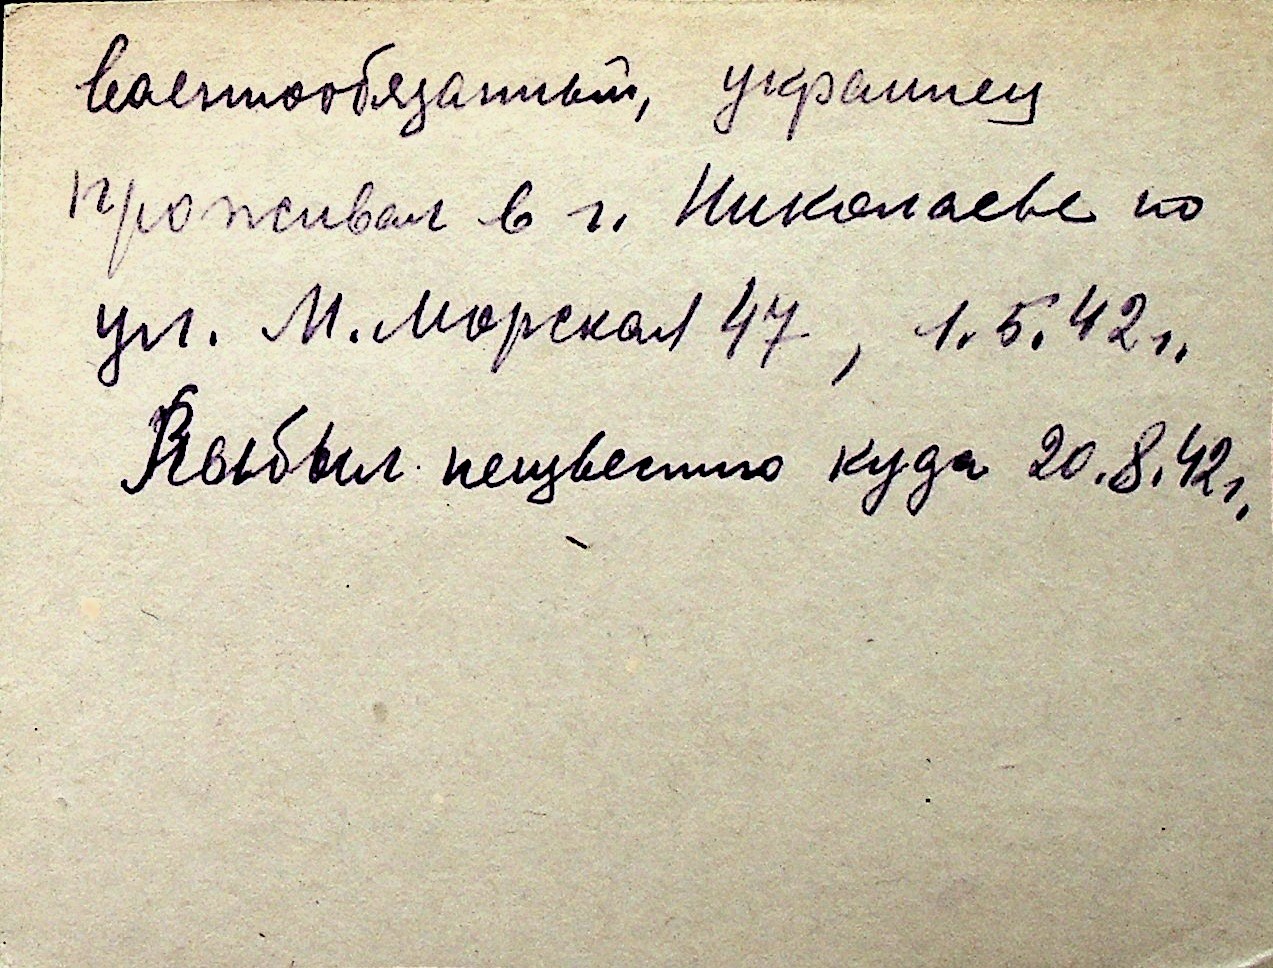 Военнообязанный, украинец
проживал в г. Николаеве по
ул. М. Морская 47, 1.5.42 г.
Выбыл неизвестно куда 20.8.42 г.